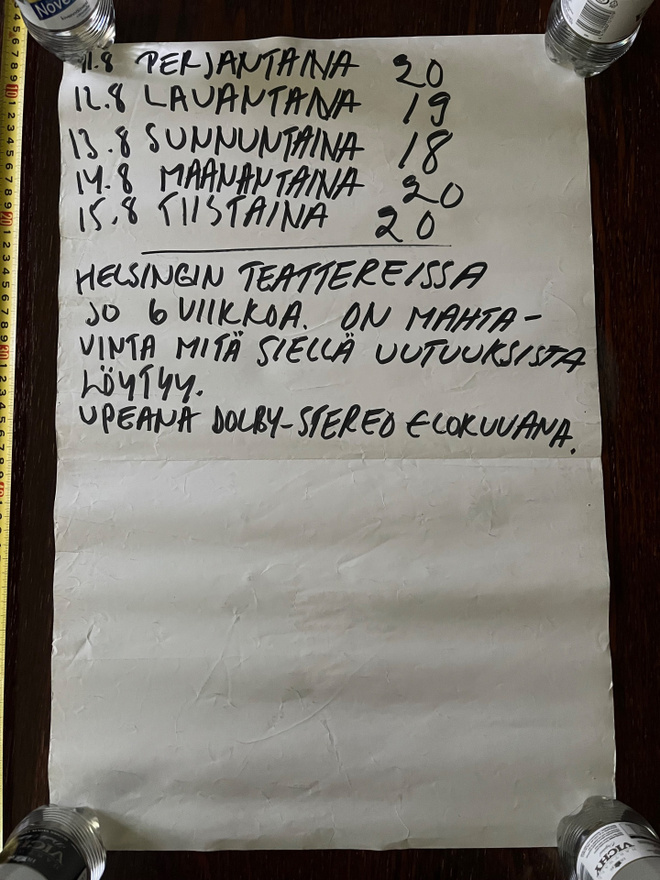 11.8 PERJANTAINA 20
12.8 LAUANTANA 19
13.8 SUNNUNTAINA 18
14.8 MAANANTAINA 20
15.8 TIISTAINA 20
HELSINGIN TEATTEREISSA
JO 6 VIIKKOA. ON MAHTA-
VINTA MITÄ SIELLÄ UUTUUKSISTA
LÖYTYY.
UPEANA DOLBY-STEREO ELOKUVANA.
Nove
VICHY
VICHY